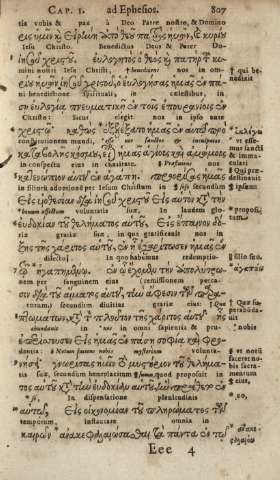 CAP. I. ad Ephesios. 807
tia vobis & pax à Deo Patre nostro, & Domino
ρις ὑμῖν καὶ εἰρήνη ἀπὸ θεοῦ πατρὸς ἡμῶν, καὶ κυρίου
Iesu Christo. Benedictus Deus & Pater Do-
ἰησοῦ χριστοῦ. εὐλογητὸς ὁ θεὸς καὶ πατὴρ τοῦ κυ-
mini nostri Iesu Christi, † benedixit nos in om- † qui be-
ρίου ἡμῶν ἰησοῦ χριστοῦ, ὁ εὐλογήσας ἡμᾶς ἐν πά- nedixit
ni benedictione spirituali, celestibus, in
σῃ εὐλογίᾳ πνευματικῇ ἐν τοῖς ἐπουρανίοις ἐν
Christo: Sicut elegit nos in ipso ante
χριστῷ καθὼς ἐξελέξατο ἡμᾶς ἐν αὐτῷ πρὸ
constitutionem mundi, esse sancti &
καταβολῆς κόσμου, εἶναι ἡμᾶς ἁγίους καὶ ἀμώμους
in conspectu eius in charitate.
κατενώπιον αὐτοῦ ἐν ἀγάπῃ. προορίσας ἡμᾶς
in filiorum adoptionẽ per Iesum Christum in secundum † ipsum
εἰς υἱοθεσίαν διὰ ἰησοῦ χριστοῦ εἰς αὐτὸν κατὰ τὴν
voluntatis suæ, In laudem glo-
εὐδοκίαν τοῦ θελήματος αὐτοῦ, εἰς ἔπαινον δό-
riæ gratiæ suæ, in qua gratificavit nos in
ξης τῆς χάριτος αὐτοῦ, ἐν ᾗ ἐχαρίτωσεν ἡμᾶς ἐν
dilecto In quo habemus redemptio-
τῷ ἠγαπημένῳ. ἐν ᾧ ἔχομεν τὴν ἀπολύτρω-
nem per sanguinem eius remissionem pecca-
σιν διὰ τοῦ αἵματος αὐτοῦ, τὴν ἄφεσιν τῶν παρα-
torum, secundum divitias gratiæ eius
πτωμάτων, κατὰ τὸν πλοῦτον τῆς χάριτος αὐτοῦ ἧς
abundavit in nos in omni sapientia & pru-
ἐπερίσσευσεν εἰς ἡμᾶς ἐν πάσῃ σοφίᾳ καὶ φρο-
dentia: mysterium volunta-
νήσει γνωρίσας ἡμῖν τὸ μυστήριον τοῦ θελήμα-
tis suæ, secundum beneplacitum quod proposuit in
τος αὐτοῦ κατὰ τὴν εὐδοκίαν αὐτοῦ, ἣν προέθετο ἐν
In dispensatione plenitudinis
αὐτῷ, εἰς οἰκονομίαν τοῦ πληρώματος τῶν
temporum, instaurare omnia in
καιρῶν ἀνακεφαλαιώσασθαι τὰ πάντα ἐν τῷ
Eee 4